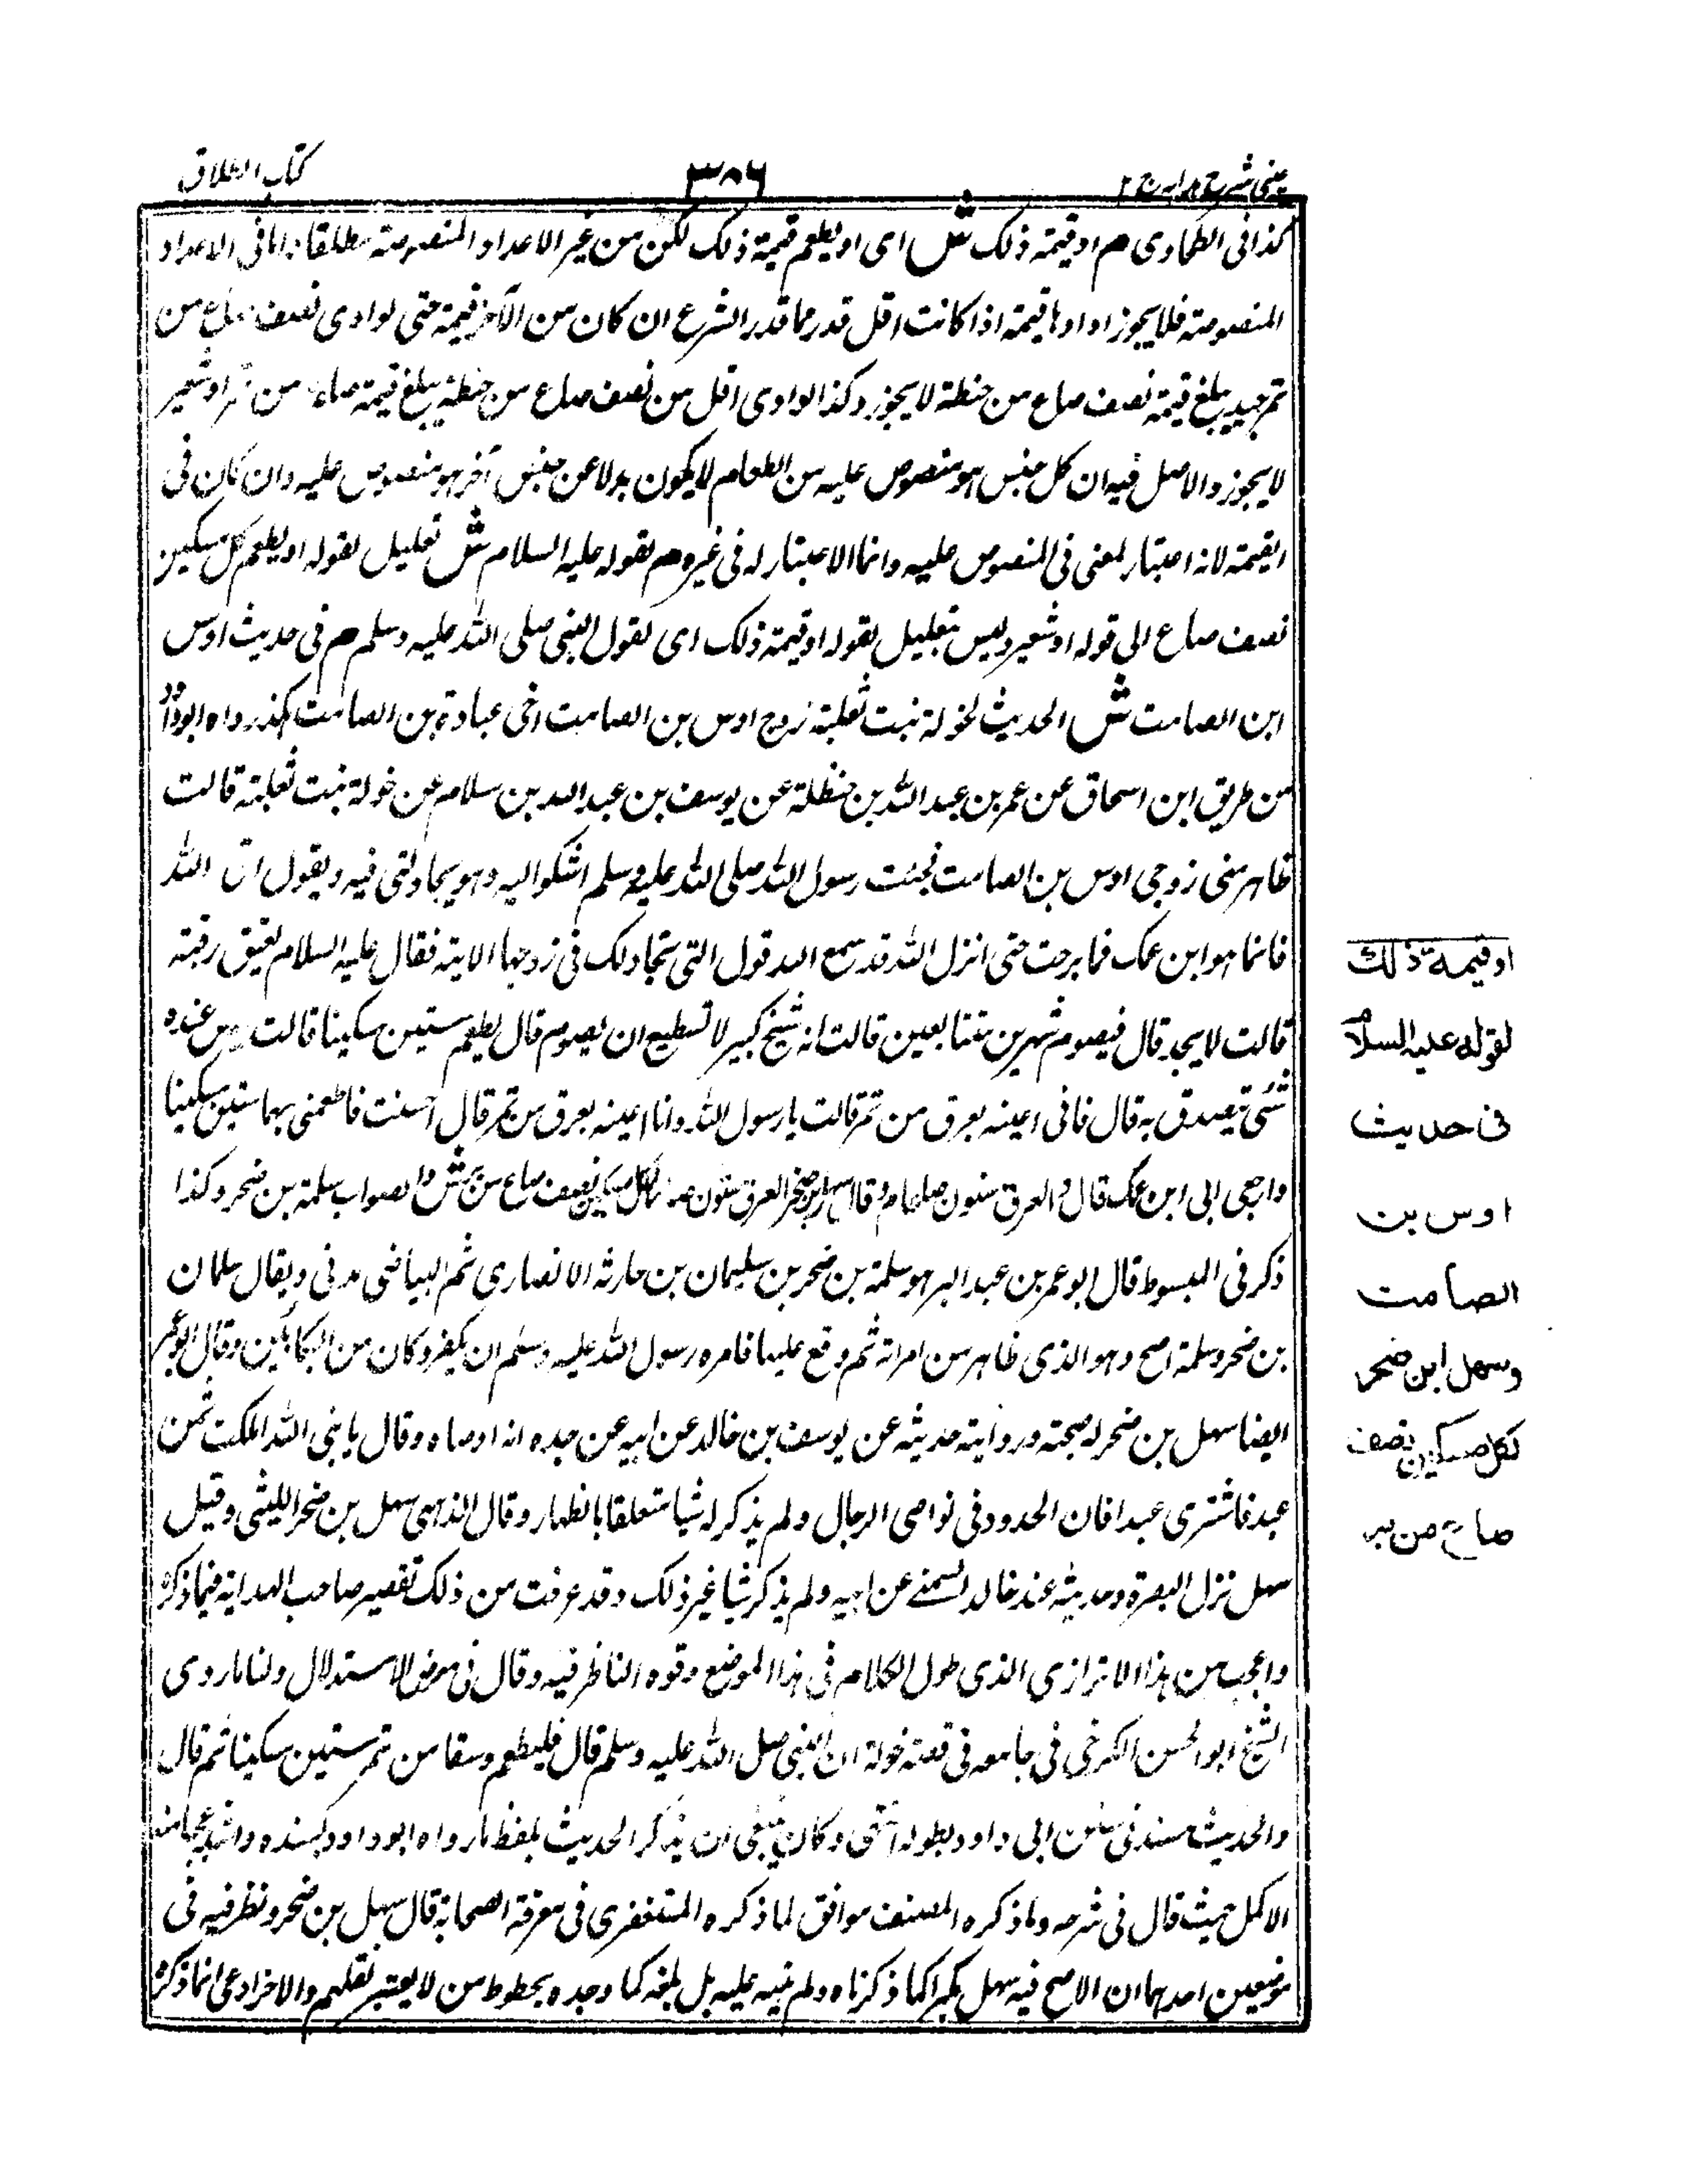 عینی شرح ہدایہ ج ۲
۳۸۶
کتاب الطلاق
كذا فى الطحاوى م او قيمة ذلك ش اى او يطعم قيمة ذلك لكن من غير الاعداد المنصوصة مطلقا اما فى الاعداد
المنصوصة فلا يجوز اداوها قيمة اذا كانت اقل قدر مما قدر الشرع ان كان من الآخر قيمة حتى لو ادى نصف صاع من
تمر جيد يبلغ قيمة نصف صاع من حنطة لا يجوز وكذا لو ادى اقل من نصف صاع من حنطة يبلغ قيمة صاع من تمر او شعير
لا يجوز والاصل فيه ان كل جنس هو منصوص عليه من الطعام لا يكون بدلا عن جنس آخر هو منصوص عليه وان كان فى
القيمة لانه اعتبار لمعنى فى المنصوص عليه وانما الاعتبار له فى غيره م لقوله عليه السلام ش تعليل لقوله او يطعم كل مسكين
نصف صاع الى قوله او شعير وليس بتعليل لقوله او قيمة ذلك اى لقول النبى صلى الله عليه وسلم م فى حديث اوس
ابن الصامت ش الحديث لخولة بنت ثعلبة زوج اوس بن الصامت اخى عبادة بن الصامت رواه ابو داؤد
من طريق ابن اسحاق عن عمر بن عبد الله بن حنظلة عن يوسف بن عبد الله بن سلام عن خولة بنت ثعلبة قالت
ظاهر منى زوجى اوس بن الصامت فجئت رسول الله صلى الله عليه وسلم اشكو اليه وهو يجادلنى فيه ويقول اتق الله
فانما هو ابن عمك فما برحت حتى انزل الله قد سمع الله قول التى تجادلك فى زوجها الاية فقال عليه السلام يعتق رقبة
قالت لا يجد قال فيصوم شهرين متتابعين قالت انه شيخ كبير لا تسطيع ان يصوم قال يطعم ستين مسكينا قالت ليس عنده
شئ يتصدق به قال فانى اعينه بعرق من تمر قالت يا رسول الله وانا اعينه بعرق من تمر قال احسنت فاطعمنى بهما ستين مسكينا
وارجعى الى ابن عمك قال والعرق ستون صاعا م وقال سهل بن صخر العرق ستون لكل مسكين نصف صاع من بر ش والصواب سلمة بن صخر وكذا
ذكر فى المبسوط قال ابو عمر بن عبد البر هو سلمة بن صخر بن سليمان بن حارثه الانصارى ثم البياضى مدنى ويقال سلمان
بن صخر وسلمة اصح وهو الذى ظاهر من امراته ثم وقع عليها فامره رسول الله عليه وسلم ان يكفر وكان من البكائين وقال ابو عمر
ايضا سهل بن صخر له صحبة ورواية حديثه عن يوسف بن خالد عن ابيه عن جده انه اوصاه وقال يا بنى الله املكت ثمن
عبد فاشترى عبدا فان الجدود فى نواصى الرجال ولم يذكر له شيا متعلقا بالظهار وقال الذهبى سهل بن صخر الليثى وقيل
سهل نزل البصرة وحديثه عند خالد السمتے عن ابيه ولم يذكر شيا غير ذلك وقد عرفت من ذلك تقصير صاحب الهداية فيما ذكره
واعجب من هذا الاترازى الذى طول الكلام فى هذا الموضع وقوه الناظر فيه وقال فى معرض الاستدلال ولنا ما روى
الشيخ ابو الحسن الكرخى فى جامعه فى قصة خولة ان النبى صلى الله عليه وسلم قال فليطعم وسقا من تمر ستين مسكينا ثم قال
والحديث مسند فى سنن ابى داود بطوله انتهى وكان ينبغى ان يذكر الحديث بلفظ ما رواه ابو داود بسنده واشد عجبا منه
الاكمل حيث قال فى شرحه وما ذكره المصنف موافق لما ذكره المستغفرى فى معرفة الصحابة قال سهل بن صخر ونظر فيه فى
موضعين احدهما ان الاصح فيه سهل كما ذكرناه ولم ينبه عليه بل بلغه كما وجده بخطوط من لا يعتبر نقلهم والاخر ادعى انما ذكره
او قيمة ذلك
لقوله عليه السلام
فى حديث
اوس بن
الصامت
وسهل ابن صخر
لكل مسكين نصف
صاع من بر